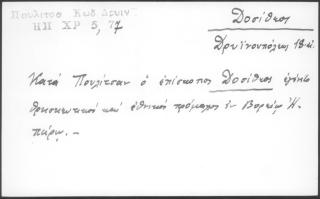 Πουλίτσα Κωδ. Δρυϊν.
ΗΠ ΧΡ 5, 77
Δοσίθεος
Δρυϊνουπόλεως 18 αἰ.
Κατὰ Πουλίτσαν ὁ ἐπίσκοπος Δοσίθεος ἐγένετο
θρησκευτικὸς καὶ ἐθνικὸς πρόμαχος ἐν Βορείῳ Ἠ-
πείρῳ. –